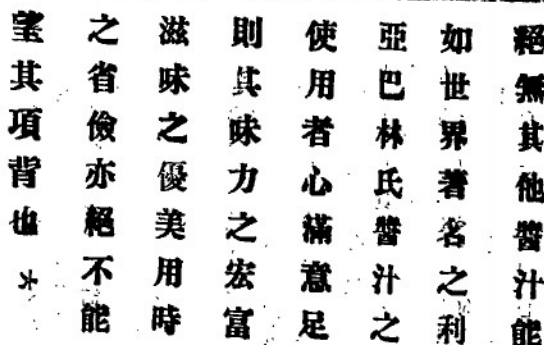 絕無其他醬汁能
如世界著名之利
亞巴林氏醬汁之
使用者心滿意足
則其味力之宏富
滋味之優美用時
之省儉亦絕不能
望其項背也